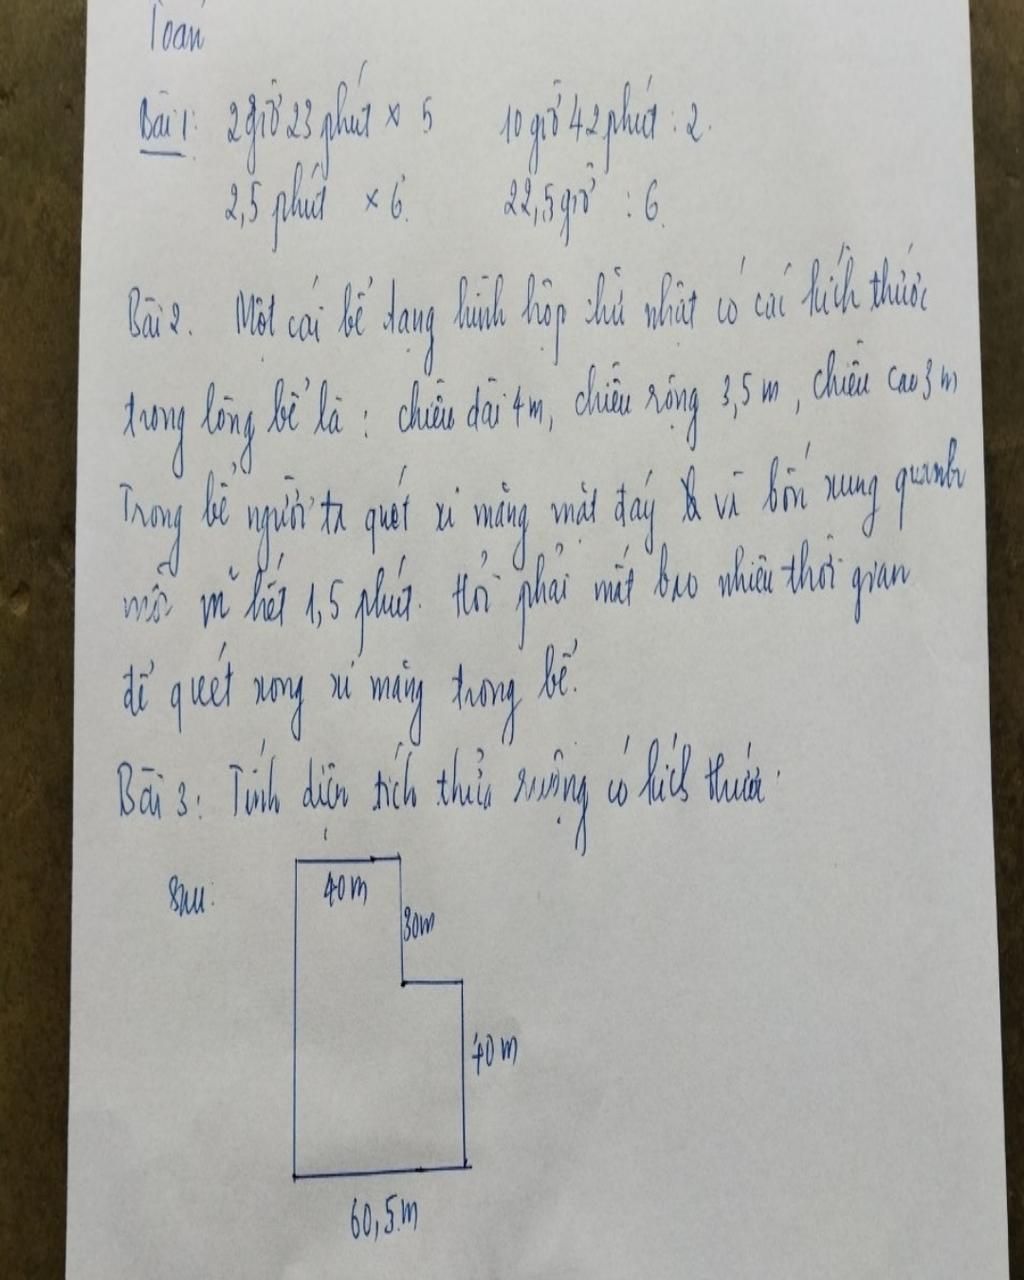 Toán
Bài 1: 2 giờ 23 phút × 5 10 giờ 42 phút : 2.
2,5 phút × 6. 22,5 giờ : 6.
Bài 2. Một cái bể dạng hình hộp chữ nhật có các kích thước
trong lòng bể là : chiều dài 4m, chiều rộng 3,5 m, chiều cao 3 m
Trong bể người ta quét xi măng mặt đáy và bốn xung quanh
mỗi m² hết 1,5 phút. Hỏi phải mất bao nhiêu thời gian
để quét xong xi măng trong bể.
Bài 3: Tính diện tích thửa ruộng có kích thước
sau:
40m
30m
40m
60,5m